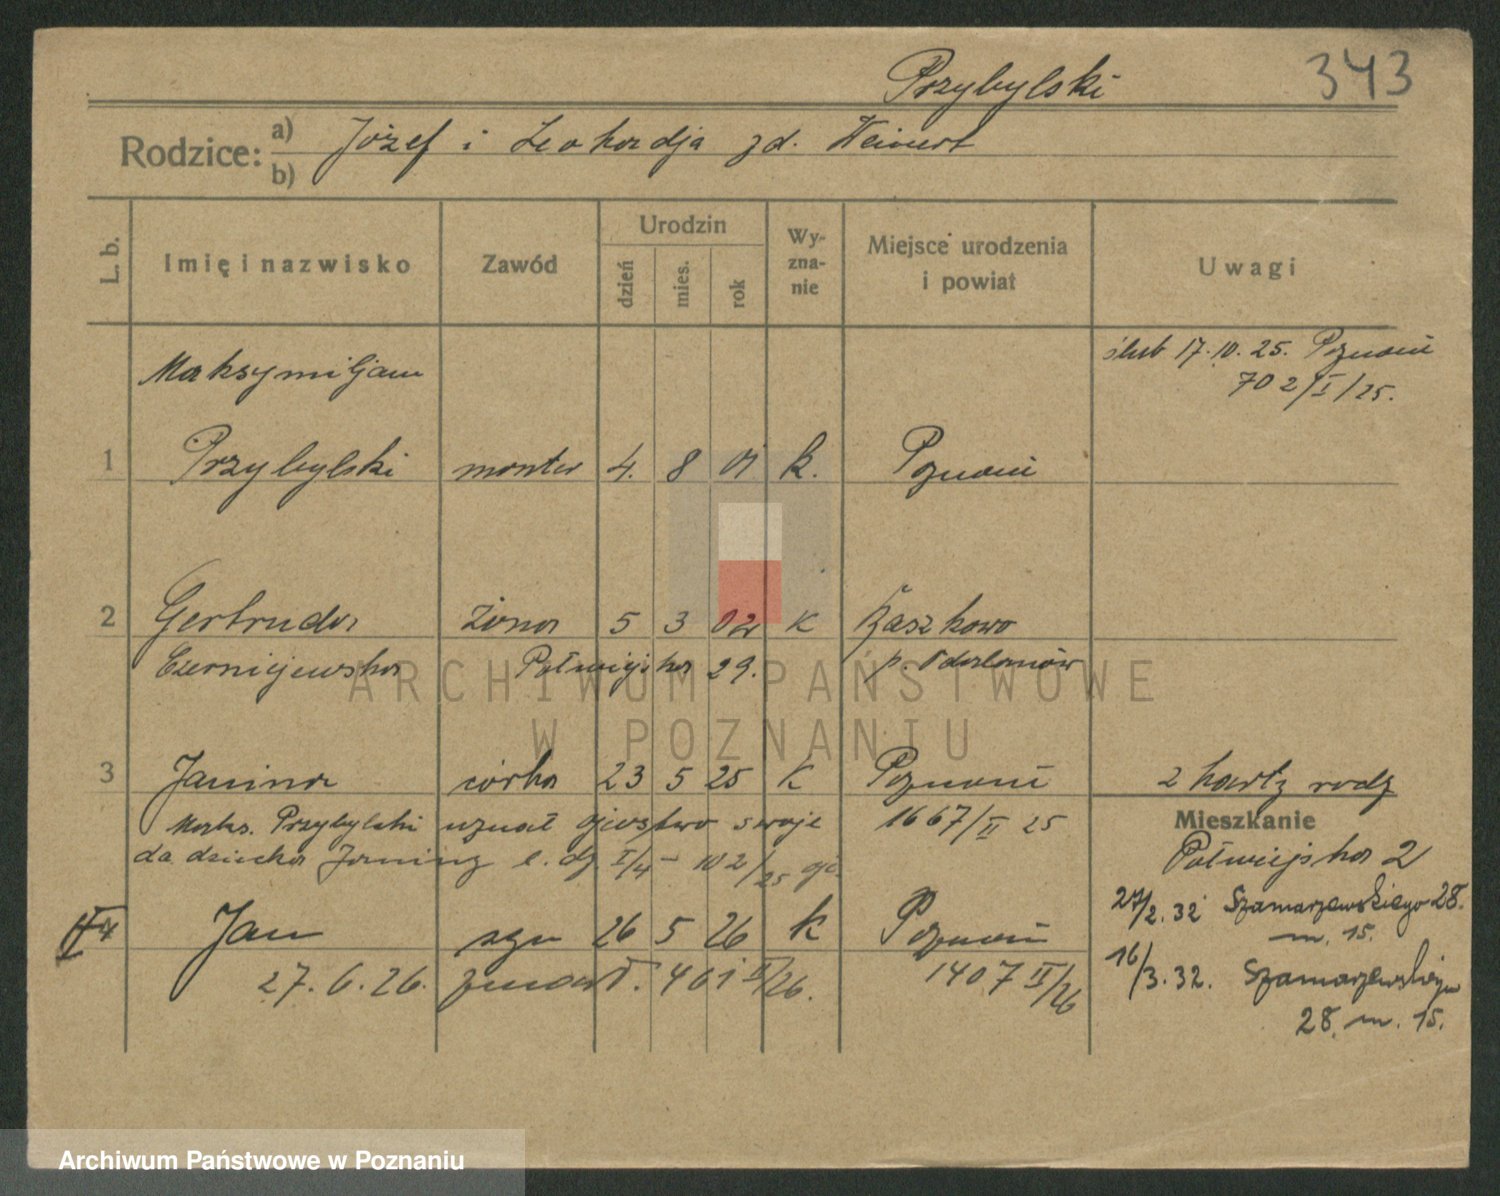 Przybylski 343
Rodzice: a) Józef i Leokadja zd. Weinert
b)
L. b. Imię i nazwisko Zawód Urodzin Wy-zna-nie Miejsce urodzenia i powiat Uwagi
dzień mies. rok
Maksymiljan ślub 17.10.25. Poznań
702/I/25.
1 Przybylski monter 4. 8 01 k. Poznań
2 Gertruda żona 5 3 02 k Kaszkowo
Czerniejewska Półwiejska 29. p. Odolanów
3 Janina córka 23 5 25 k Poznań 2 kartz rodz
Maks. Przybylski uznał ojcostwo swoje 1667/II 25
Mieszkanie
da dziecka Janiny l. dz I/4 - 102/25
Półwiejska 2
27/2.32 Szamarzewskiego 28.
m. 15.
4 Jan syn 26 5 26 k Poznań
27.6.26. zmarł. 461 II/26. 1407 II/26
16/3.32. Szamarzewskiego
28. m. 15.
ARCHIWUM PAŃSTWOWE
W POZNANIU
Archiwum Państwowe w Poznaniu